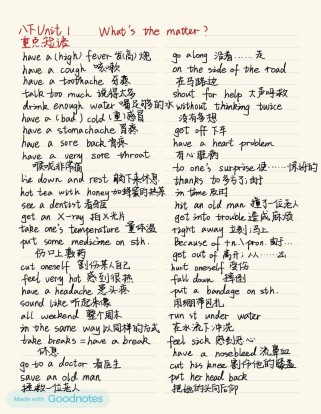 八下Unit 1 What's the matter?
重点短语
have a (high) fever 发(高)烧
have a cough 咳嗽
have a toothache 牙疼
talk too much 说得太多
drink enough water 喝足够的水
have a (bad) cold (重)感冒
have a stomachache 胃疼
have a sore back 背疼
have a very sore throat
喉咙非常痛
lie down and rest 躺下来休息
hot tea with honey 加蜂蜜的热茶
see a dentist 看牙医
get an X-ray 拍X光片
take one's temperature 量体温
put some medicine on sth.
伤口上敷药
cut oneself 割伤某人自己
feel very hot 感到很热
have a headache 患头疼
sound like 听起来像
all weekend 整个周末
in the same way 以同样的方式
take breaks = have a break
休息
go to a doctor 看医生
save an old man
拯救一位老人
go along 沿着……走
on the side of the road
在马路边
shout for help 大声呼救
without thinking twice
没有多想
get off 下车
have a heart problem
有心脏病
to one's surprise 使……惊讶的
thanks to 多亏了;由于
in time 及时
hit an old man 撞了一位老人
get into trouble 造成麻烦
right away 立刻;马上
Because of +n.\pron. 由于…
get out of 离开;从……出
hurt oneself 受伤
fall down 摔倒
put a bandage on sth.
用绷带包扎
run it under water
在水流下冲洗
feel sick 感到恶心
have a nosebleed 流鼻血
cut his knee 割伤他的膝盖
put her head back
把她的头向后仰
Made with Goodnotes